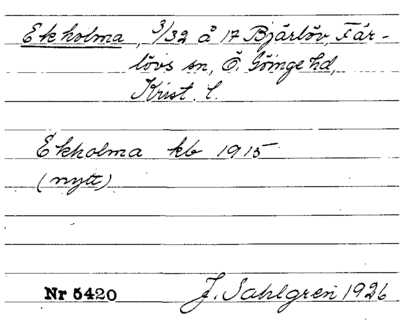 Ekholma, 3/32 å 17 Bjärlöv, Fär-
lövs sn, Ö. Göinge hd,
Krist. l.
Ekholma kb 1915
(nytt)
Nr 5420 J. Sahlgren 1926